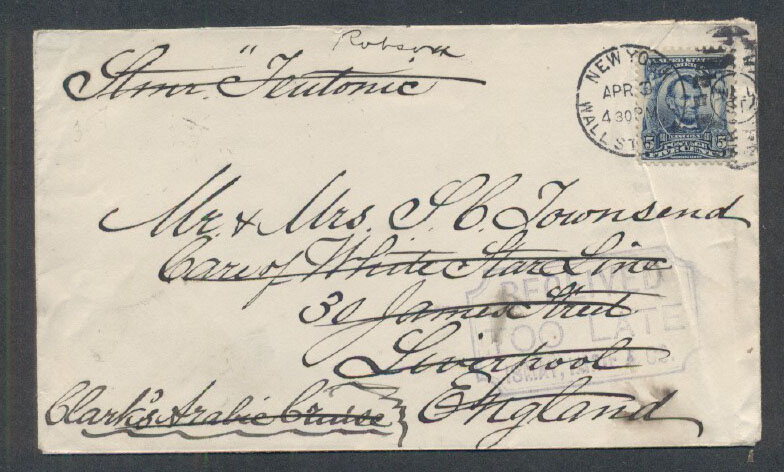 Robson
Stmr "Teutonic
NEW YO
APR 3
4 30 PM
WALL ST
5 5
Mr. & Mrs. S. C. Townsend
Care of White Star Line
30 James Street
Liverpool
England
Clark's Arabic Cruise
RECEIVED
TOO LATE
ISMAY, IMRIE & CO.